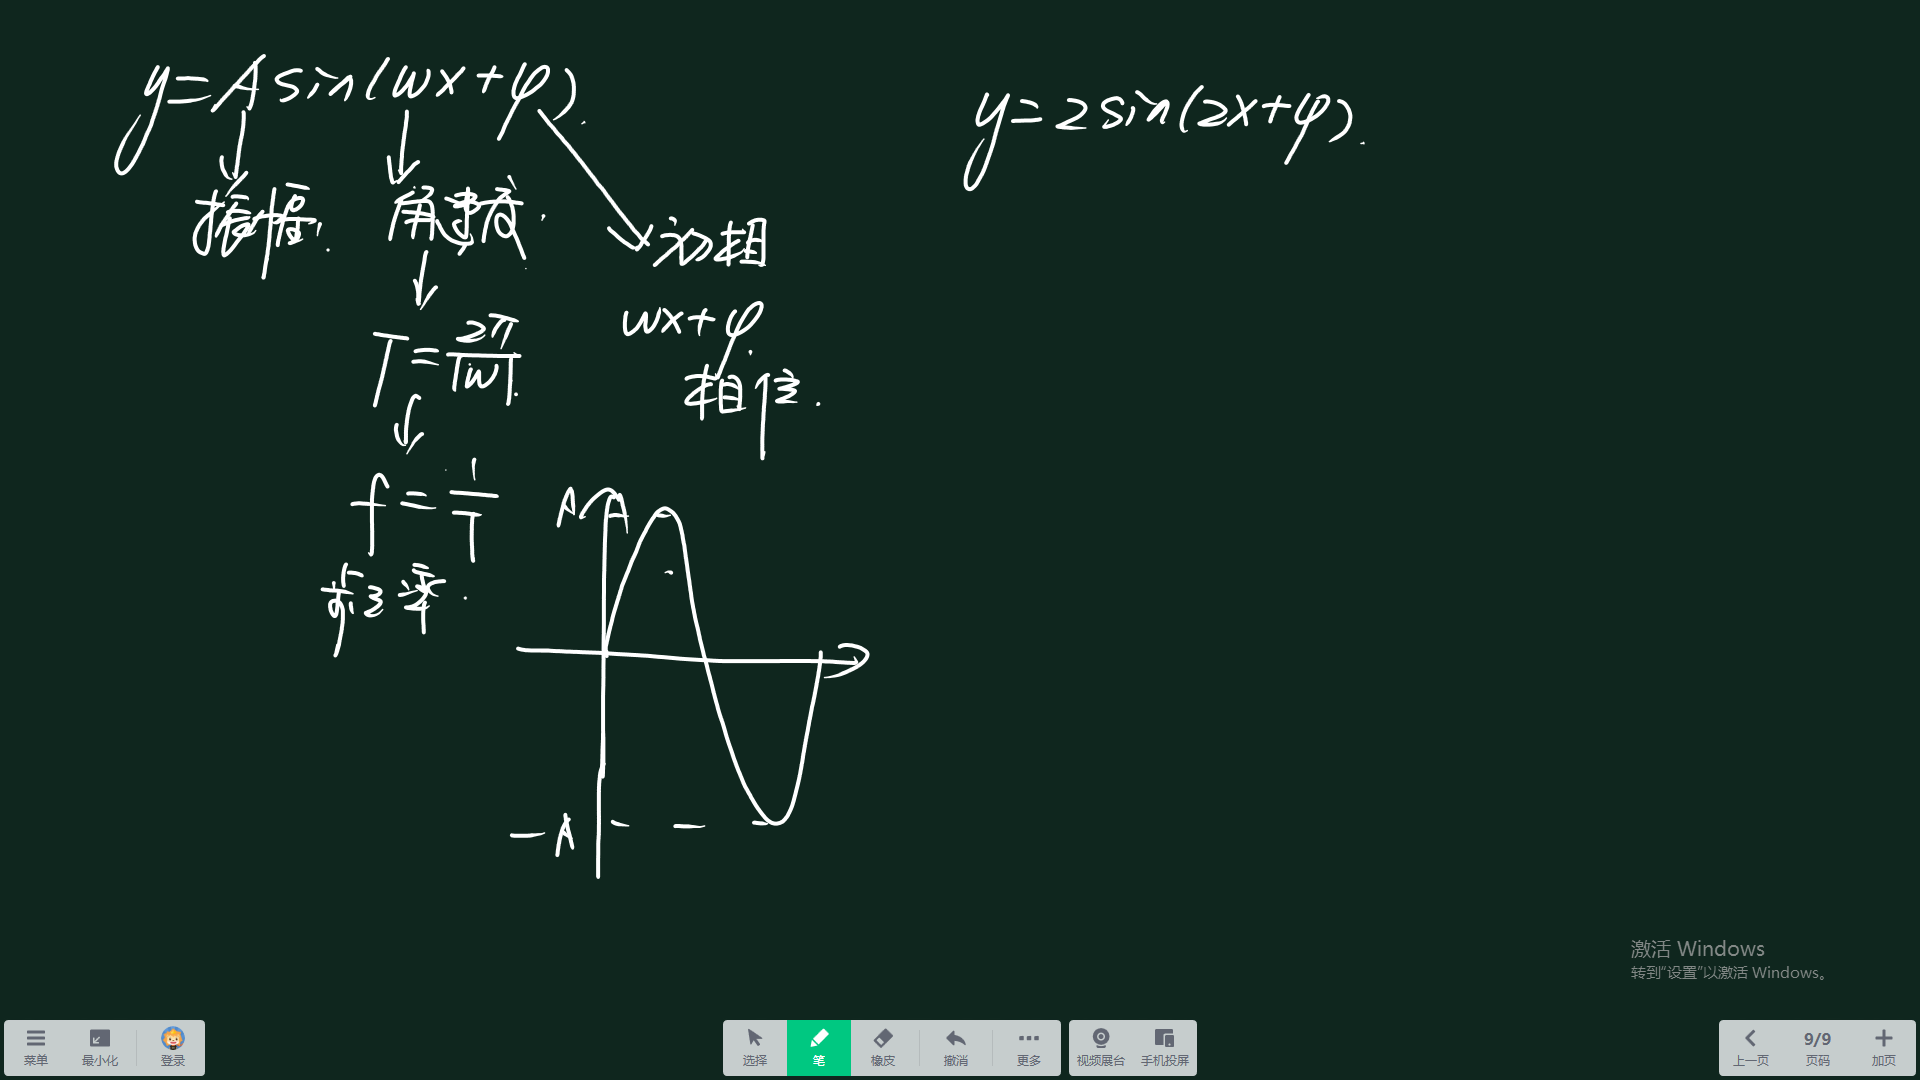 y=Asin(wx+φ).
振幅.
角速度.
初相
T=2π/|w|.
wx+φ.
相位.
f=1/T
频率.
A
-A
y=2sin(2x+φ).
激活 Windows
转到“设置”以激活 Windows。
菜单
最小化
登录
选择
笔
橡皮
撤消
更多
视频展台
手机投屏
上一页
9/9
页码
加页